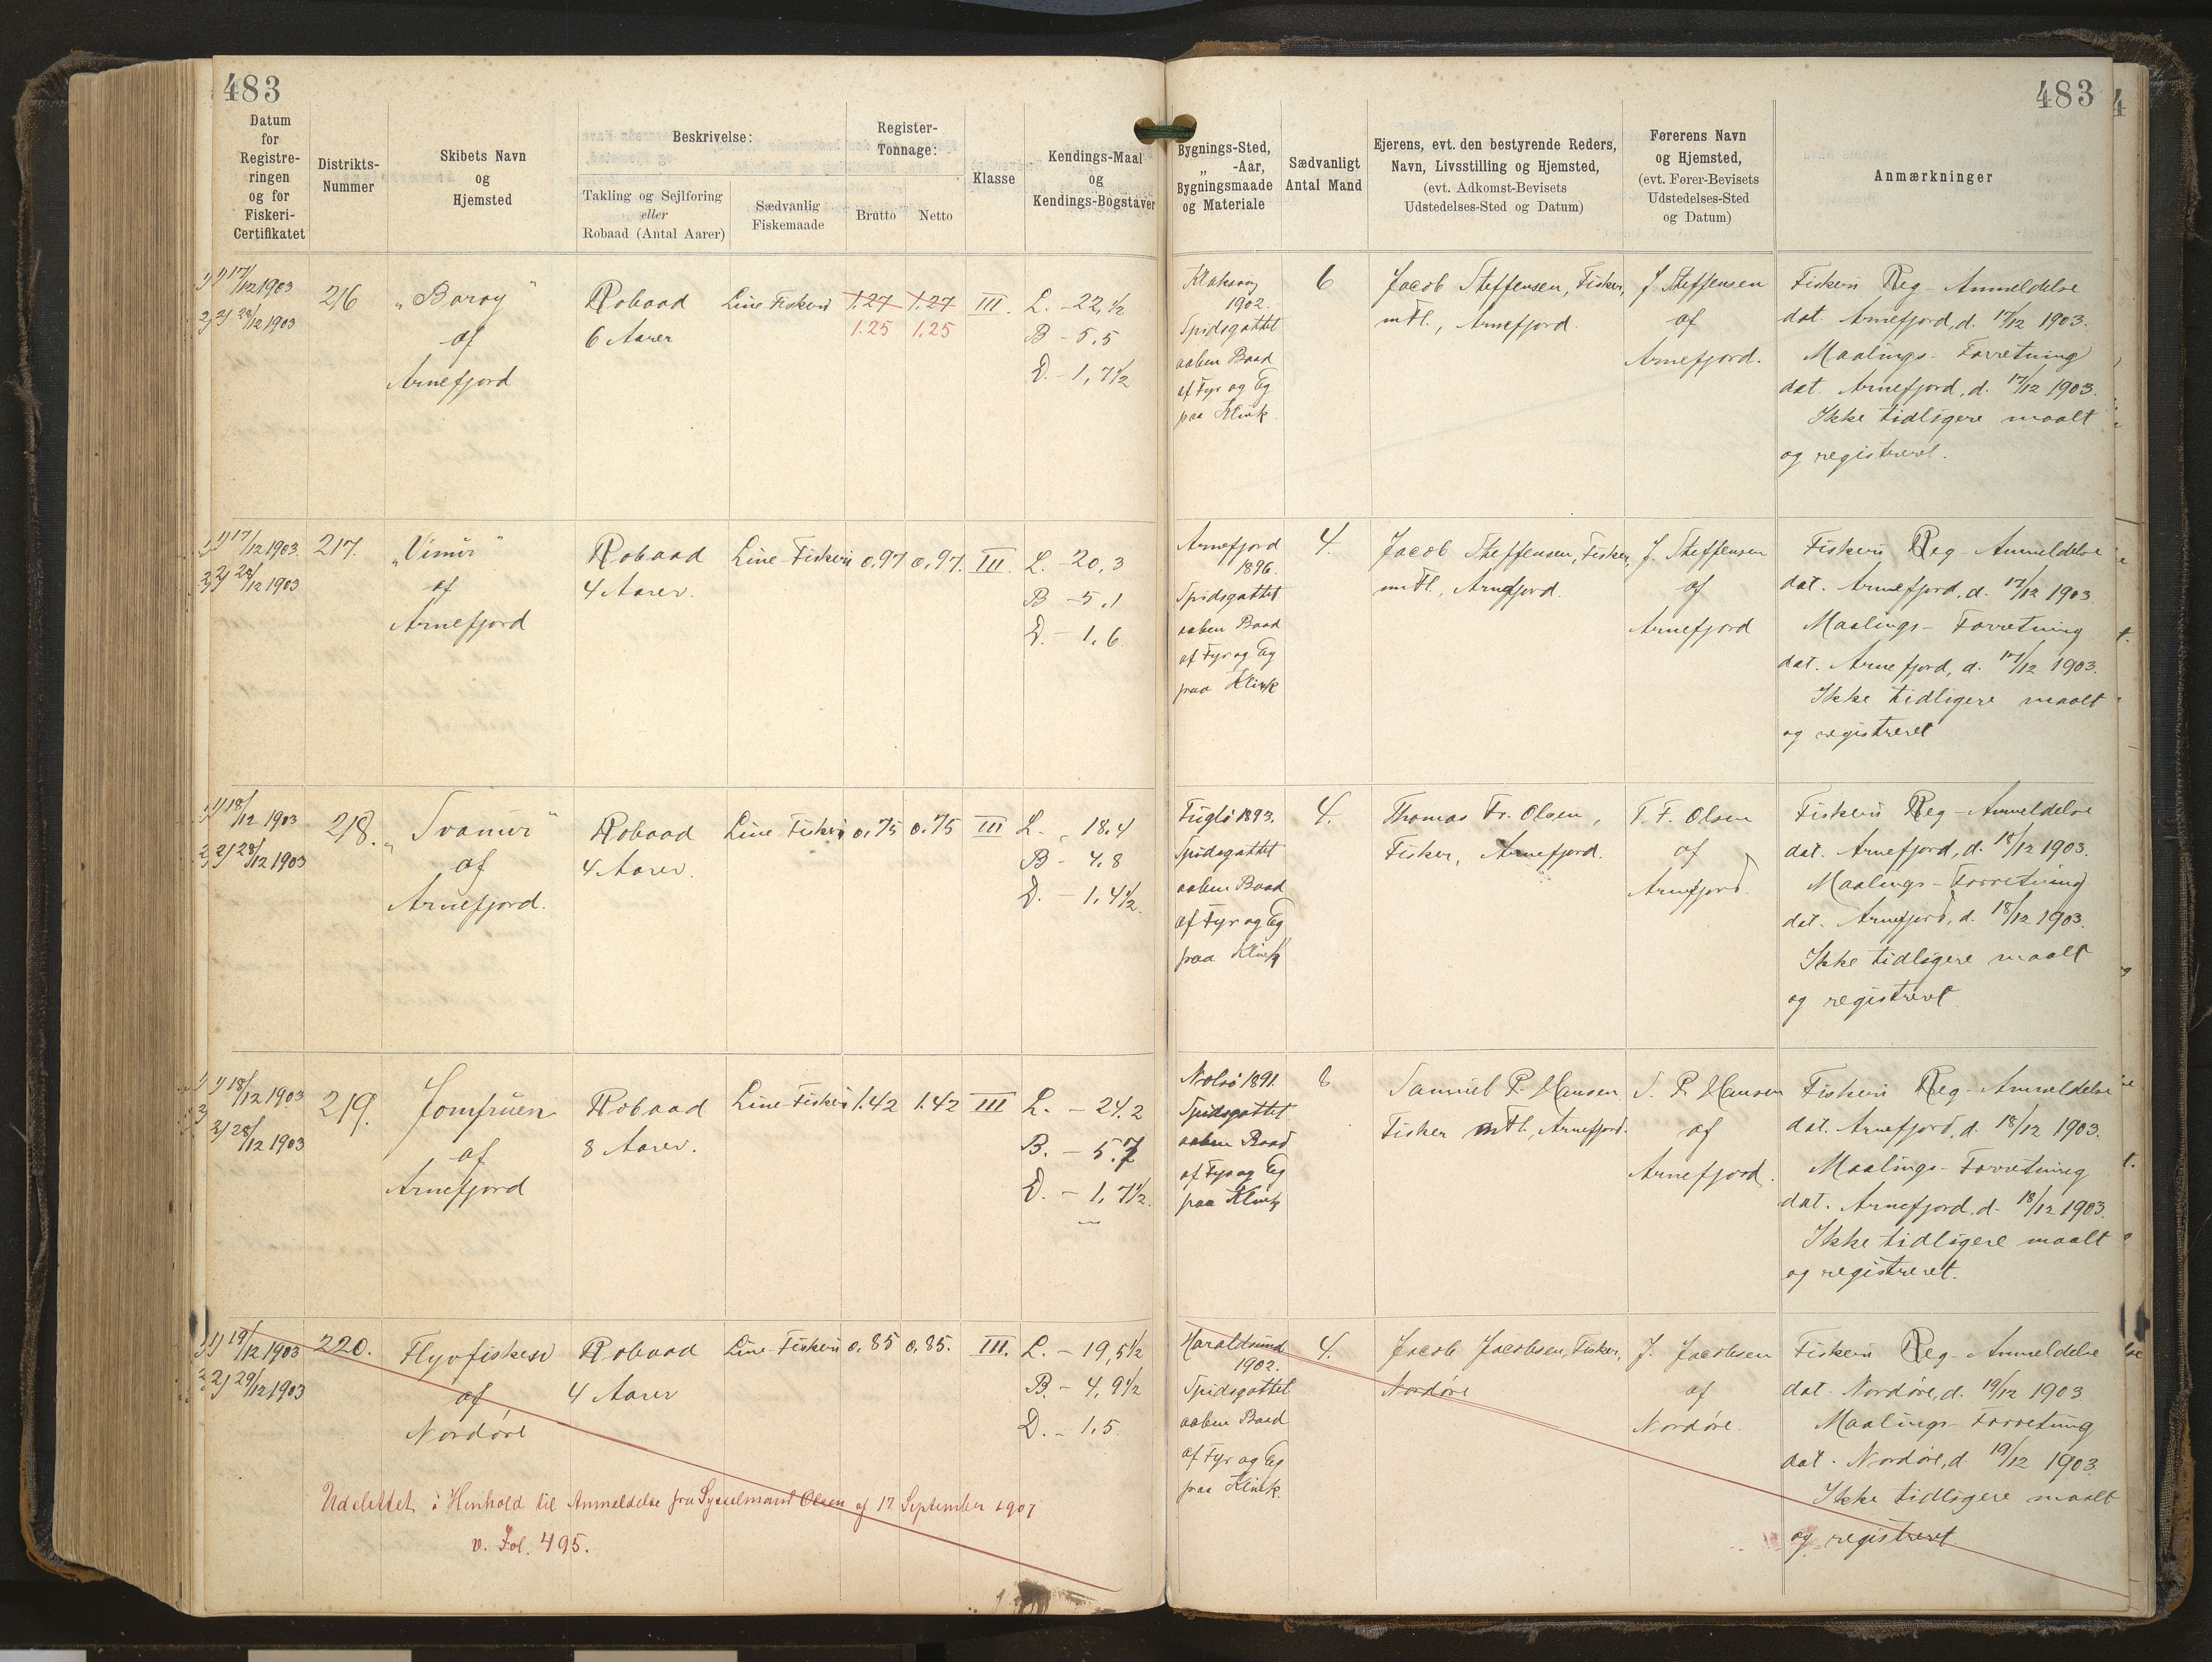 483
483
Datum
for
Registre-
ringen
og for
Fiskeri-
Certifikatet
Distrikts-
Nummer
Skibets Navn
og
Hjemsted
Beskrivelse:
Takling og Sejlføring
eller
Robaad (Antal Aarer)
Sædvanlig
Fiskemaade
Register-
Tonnage:
Brutto
Netto
Klasse
Kendings-Maal
og
Kendings-Bogstaver
Bygnings-Sted,
„ -Aar,
Bygningsmaade
og Materiale
Sædvanligt
Antal Mand
Ejerens, evt. den bestyrende Reders,
Navn, Livsstilling og Hjemsted,
(evt. Adkomst-Bevisets
Udstedelses-Sted og Datum)
Førerens Navn
og Hjemsted,
(evt. Fører-Bevisets
Udstedelses-Sted
og Datum)
Anmærkninger
1) 17/12 1903
2) 28/12 1903
216
„Boroy"
af
Arnefjord
Robaad
6 Aarer
Line Fiskeri
1.27 1.27
1.25 1.25
III.
L. - 22,½
B - 5.5
D. - 1,7½
Klaksvig
1902.
Spidsgattet
aaben Baad
af Fyr og Eg
paa Klink.
6
Jacob Steffensen, Fisker,
m Fl., Arnefjord.
J. Steffensen
af
Arnefjord.
Fiskeri Reg - Anmeldelse
dat. Arnefjord, d. 17/12 1903.
Maalings - Forretning
dat. Arnefjord, d. 17/12 1903.
Ikke tidligere maalt
og registreret.
1) 17/12 1903.
2) 28/12 1903
217.
„Vimur"
af
Arnefjord
Robaad
4 Aarer.
Line Fiskeri
0,97 0,97.
III.
L. - 20,3
B - 5,1
D. - 1,6
Arnefjord
1896.
Spidsgattet
aaben Baad
af Fyr og Eg
paa Klink
4.
Jacob Steffensen, Fisker,
m Fl., Arnefjord.
J. Steffensen
af
Arnefjord
Fiskeri Reg - Anmeldelse
dat. Arnefjord, d. 17/12 1903.
Maalings - Forretning
dat. Arnefjord, d. 17/12 1903.
Ikke tidligere maalt
og registreret
1) 18/12 1903
2) 28/12 1903
218.
„Svanur"
af
Arnefjord.
Robaad
4 Aarer.
Line Fiskeri
0,75 0,75
III
L. - 18,4
B - 4,8
D. - 1,4½.
Fuglø 1893.
Spidsgattet
aaben Baad
af Fyr og Eg
paa Klink
4.
Thomas Fr. Olsen,
Fisker, Arnefjord.
T. F. Olsen
af
Arnefjord.
Fiskeri Reg - Anmeldelse
dat. Arnefjord, d. 18/12 1903.
Maalings - Forretning
dat. Arnefjord, d. 18/12 1903.
Ikke tidligere maalt
og registreret.
1) 18/12 1903
2) 28/12 1903
219.
Jomfruen
af
Arnefjord
Robaad
8 Aarer.
Line-Fiskeri
1.42 1.42
III
L. - 24.2
B. - 5.7
D. - 1,7½.
Nolsø 1891.
Spidsgattet
aaben Baad
af Fyr og Eg
paa Klink
8
Samuel P. Hansen
Fisker m Fl., Arnefjord.
S. P. Hansen
af
Arnefjord.
Fiskeri Reg - Anmeldelse
dat. Arnefjord, d. 18/12 1903.
Maalings - Forretning
dat. Arnefjord, d. 18/12 1903.
Ikke tidligere maalt
og registreret.
1) 19/12 1903
2) 29/12 1903
220.
Flyvefisken
af
Nordøre
Robaad
4 Aarer
Line-Fiskeri
0,85 0,85.
III.
L. - 19,5½
B. - 4,9½
D. - 1,5
Haraldsund
1902.
Spidsgattet
aaben Baad
af Fyr og Eg
paa Klink.
4.
Jacob Jacobsen, Fisker,
Nordøre
J. Jacobsen
af
Nordøre.
Fiskeri Reg - Anmeldelse
dat. Nordøre, d. 19/12 1903.
Maalings - Forretning
dat. Nordøre, d. 19/12 1903.
Ikke tidligere maalt
og registreret.
Udslettet i Henhold til Anmeldelse fra Sysselmand Olsen af 17. September 1907
v. Fol. 495.